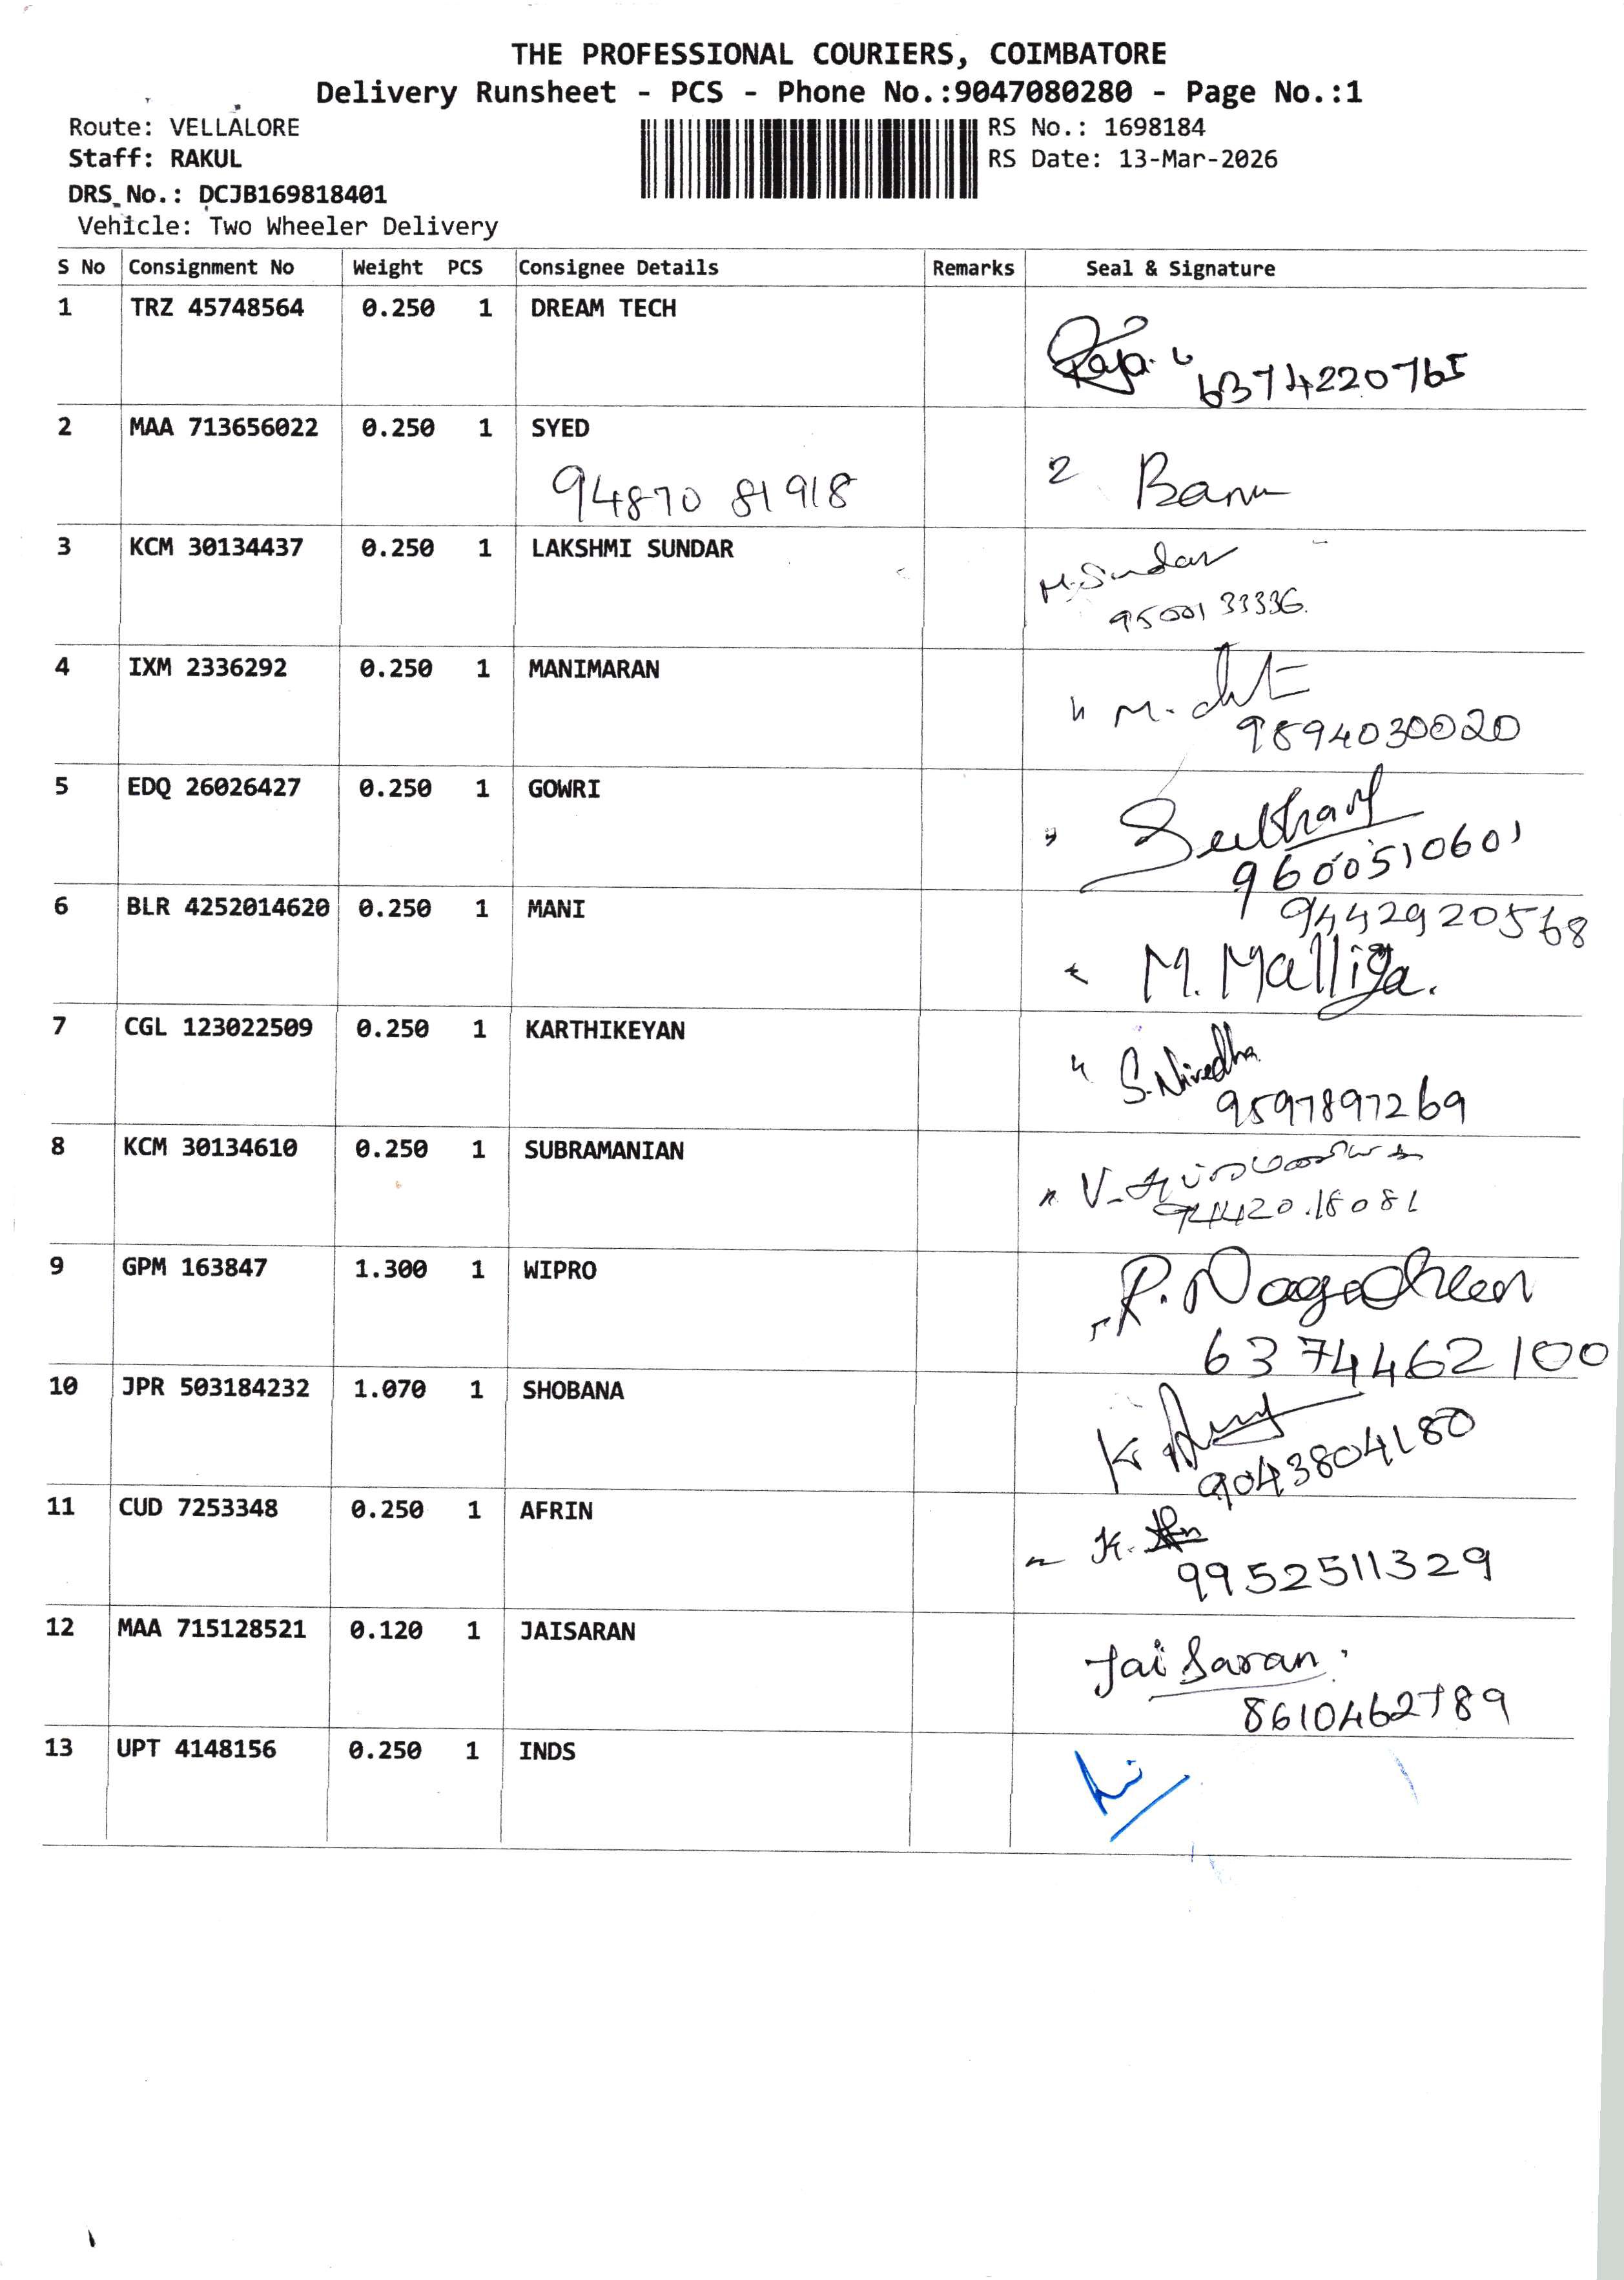 THE PROFESSIONAL COURIERS, COIMBATORE
Delivery Runsheet - PCS - Phone No.:9047080280 - Page No.:1
Route: VELLALORE
RS No.: 1698184
Staff: RAKUL
RS Date: 13-Mar-2026
DRS No.: DCJB169818401
Vehicle: Two Wheeler Delivery
S No Consignment No Weight PCS Consignee Details Remarks Seal & Signature
1 TRZ 45748564 0.250 1 DREAM TECH
Raja
6374220765
2 MAA 713656022 0.250 1 SYED
94870 81918
2 Banu
3 KCM 30134437 0.250 1 LAKSHMI SUNDAR
M.Sundar
9500133336.
4 IXM 2336292 0.250 1 MANIMARAN
M.
9894030020
5 EDQ 26026427 0.250 1 GOWRI
9600510601
6 BLR 4252014620 0.250 1 MANI
9442920568
M. Malliga.
7 CGL 123022509 0.250 1 KARTHIKEYAN
S.Nivedha
9597897269
8 KCM 30134610 0.250 1 SUBRAMANIAN
V-
94420.18081
9 GPM 163847 1.300 1 WIPRO
R.
6374462100
10 JPR 503184232 1.070 1 SHOBANA
K
9043804180
11 CUD 7253348 0.250 1 AFRIN
K.
9952511329
12 MAA 715128521 0.120 1 JAISARAN
Jai Saran.
8610462789
13 UPT 4148156 0.250 1 INDS